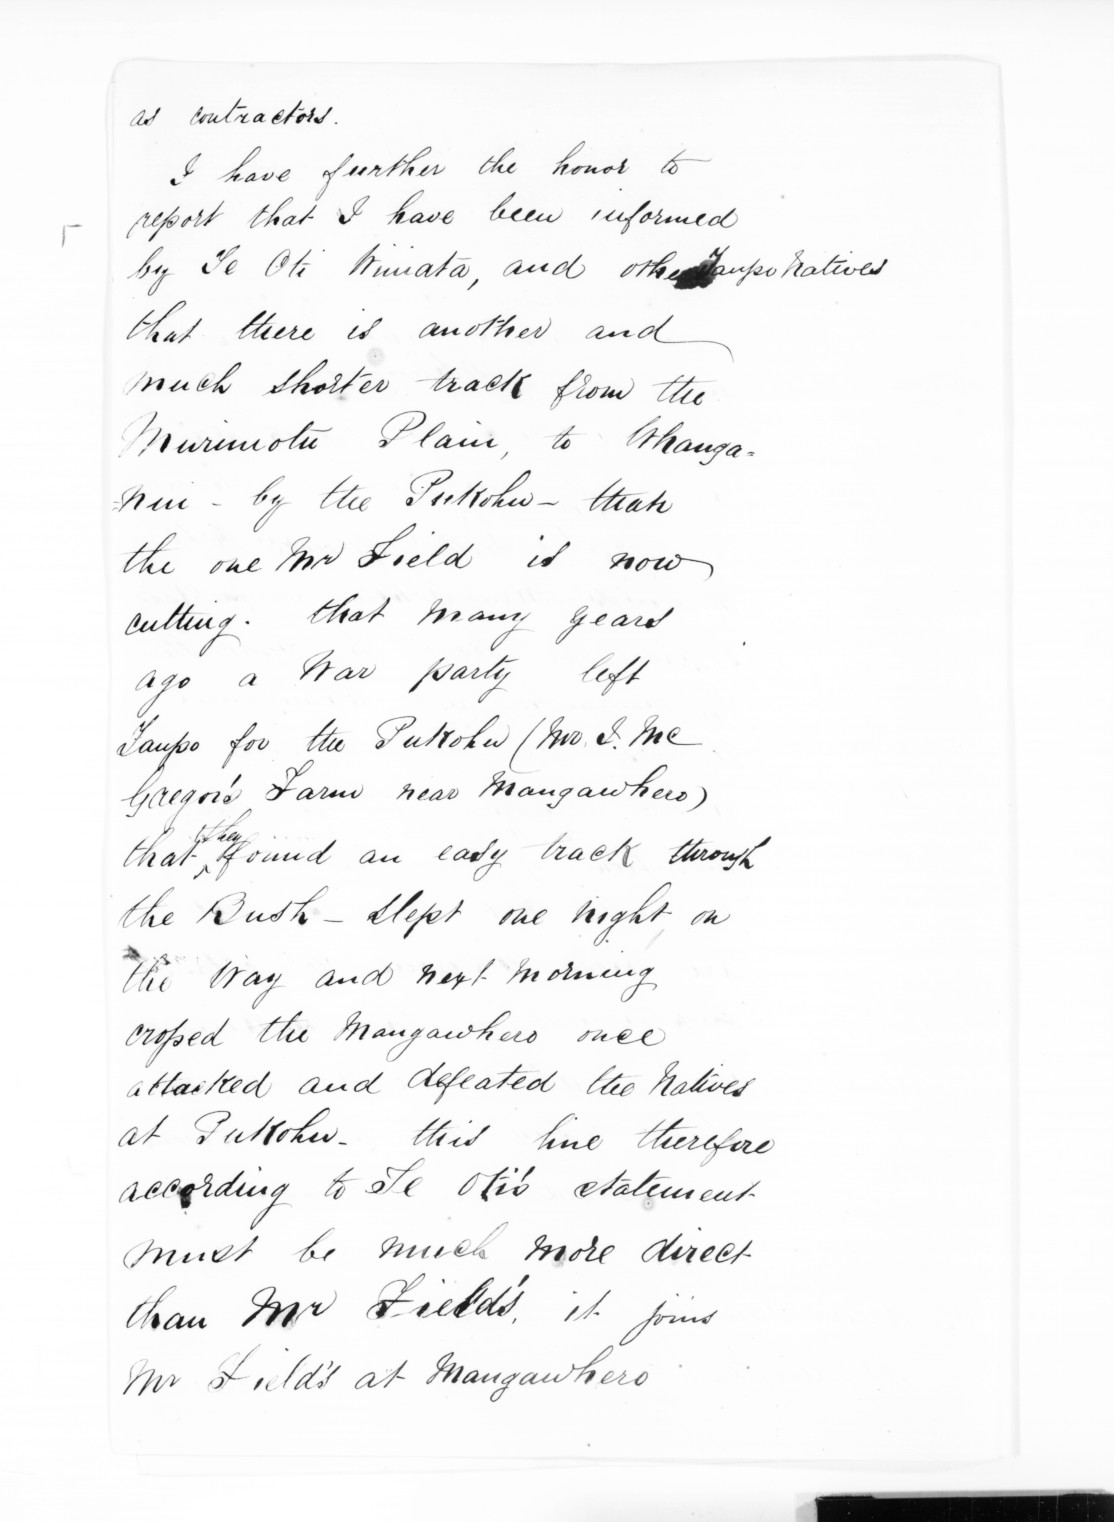 as contractors.
I have further the honor to
report that I have been informed
by Te Oti Winiata, and other Taupo Natives
that there is another and
much shorter track from the
Murimotu Plain, to Whanga=
=nui - by the Pukohu - than
the one Mr Field is now
cutting. that many years
ago a War party left
Taupo for the Pukohu (Mr. J. Mc
Gregor's Farm near Mangawhero)
that they found an easy track through
the Bush - slept one night on
the Way and next morning
crossed the Mangawhero once
attacked and defeated the Natives
at Pukohu - this line therefore
according to Te Oti's statement
must be much more direct
than Mr Field's, it joins
Mr Field's at Mangawhero